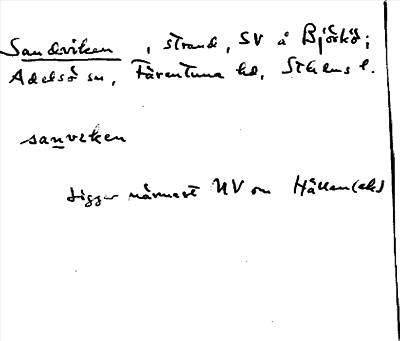 Sandviken, strand, SV å Björkö;
Adelsö sn, Färentuna hd, Sthlms l.
sanviken
Ligger närmast NV om